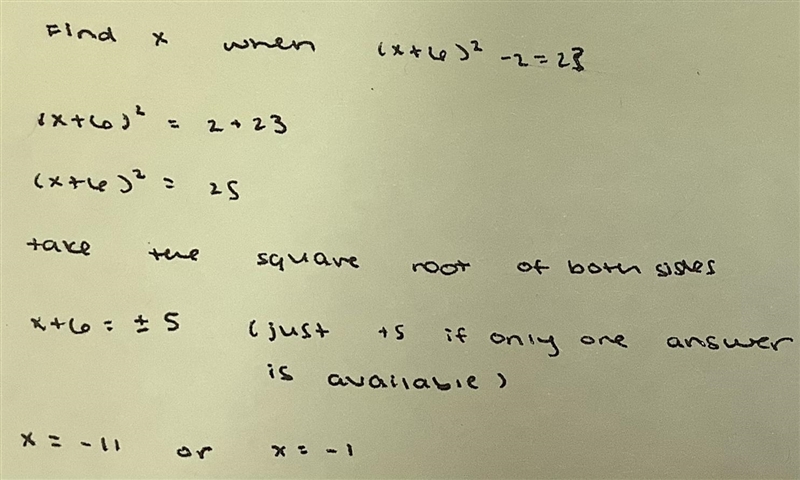 Find x when (x+6)² -2=23
(x+6)² = 2+23
(x+6)² = 25
take the square root of both sides
x+6= ±5 (just +5 if only one answer
is available)
x= -11 or x= -1